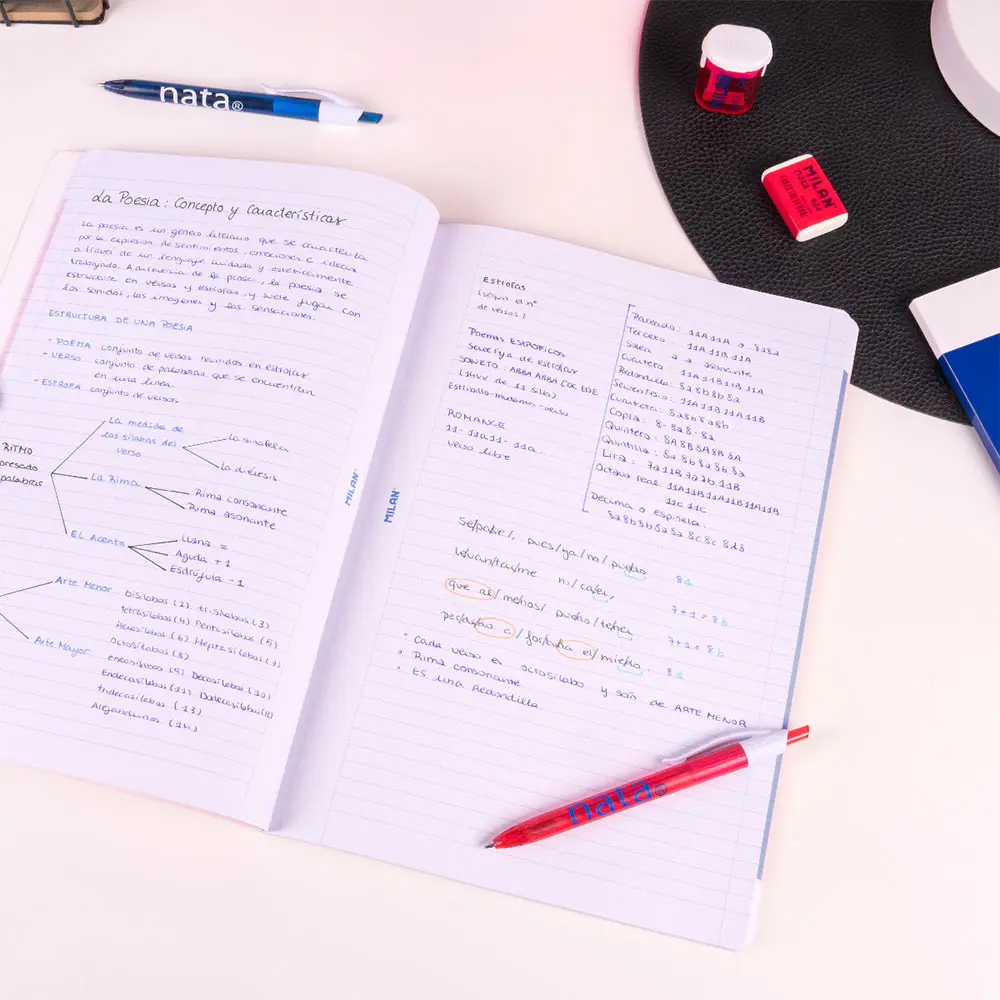 nata®
La Poesía: Concepto y Características
La poesía es un género literario que se caracteriza
por la expresión de sentimientos, emociones e ideas
a través de un lenguaje cuidado y estéticamente
trabajado. A diferencia de la prosa, la poesía se
estructura en versos y estrofas, y suele jugar con
los sonidos, las imágenes y las sensaciones.
ESTRUCTURA DE UNA POESÍA
- POEMA conjunto de versos reunidos en estrofas
- VERSO conjunto de palabras que se encuentran
en una línea
- ESTROFA conjunto de versos
RITMO
presado
palabras
La medida de
las sílabas del
verso
La sinalefa
La diéresis
La Rima
Rima consonante
Rima asonante
EL Acento
Llana =
Aguda +1
Esdrújula -1
Arte Menor
bisílabos (2) trisílabos (3)
tetrasílabos (4) Pentasílabos (5)
Hexasílabos (6) Heptasílabos (7)
Octosílabos (8)
Arte Mayor
eneasílabos (9) Decasílabos (10)
Endecasílabos (11) Dodecasílabos (12)
tridecasílabos (13)
Alejandrinos (14)
MILAN
MILAN
Estrofas
(según el nº
de versos)
Poemas ESTRÓFICOS
de estrofas
SONETO: ABBA ABBA CDE CDE
(14vv de 11 sílabas)
Estribillo-mudanza-verso
ROMANCE
11- 11a 11- 11a
verso libre
Pareado: 11A 11A o 8a8a
Terceto: 11A 11B 11A
Solea a - a asonante
Cuarteto: 11A 11B 11B 11A
Redondilla: 8a 8b 8b 8a
Serventesio: 11A 11B 11A 11B
Cuarteta: 8a 8b 8a 8b
Copla: 8- 8a 8- 8a
Quinteto: 8A 8B 8A 8B 8A
Quintilla: 8a 8b 8a 8b 8a
Lira: 7a 11B 7a 7b 11B
Octava real: 11A 11B 11A 11B 11A 11B
11C 11C
Décima o espinela:
8a 8b 8b 8a 8a 8c 8c 8d 8
pues/ya/no/puedo 8a
levan/tar/me ni/ caer, 7+1=8b
que al/ menos/ puedo/ tener 7+1=8b
for/tu/na el/ miedo. 8a
• Cada verso es octosílabo y son de ARTE MENOR
• Rima consonante
• ES una Redondilla
nata®
MILAN
nata 624